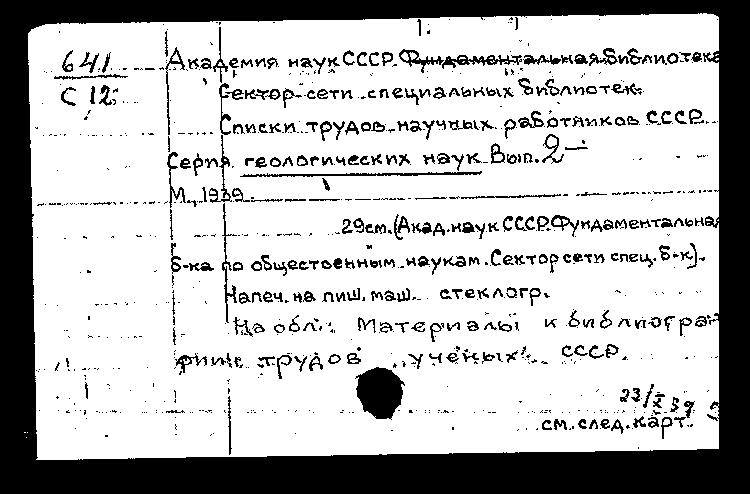 641
С 12
Академия наук СССР. Фундаментальная библиотека
Сектор сети специальных библиотек.
Списки трудов научных работников СССР
Серия геологических наук Вып. 2-
М., 1939.
29см. (Акад. наук СССР. Фундаментальная
б-ка по общественным наукам. Сектор сети спец. б-к).
Напеч. на пиш. маш. стеклогр.
На обл.: Материалы к библиогра-
фии трудов ученых СССР.
23/X 39
см. след. карт.